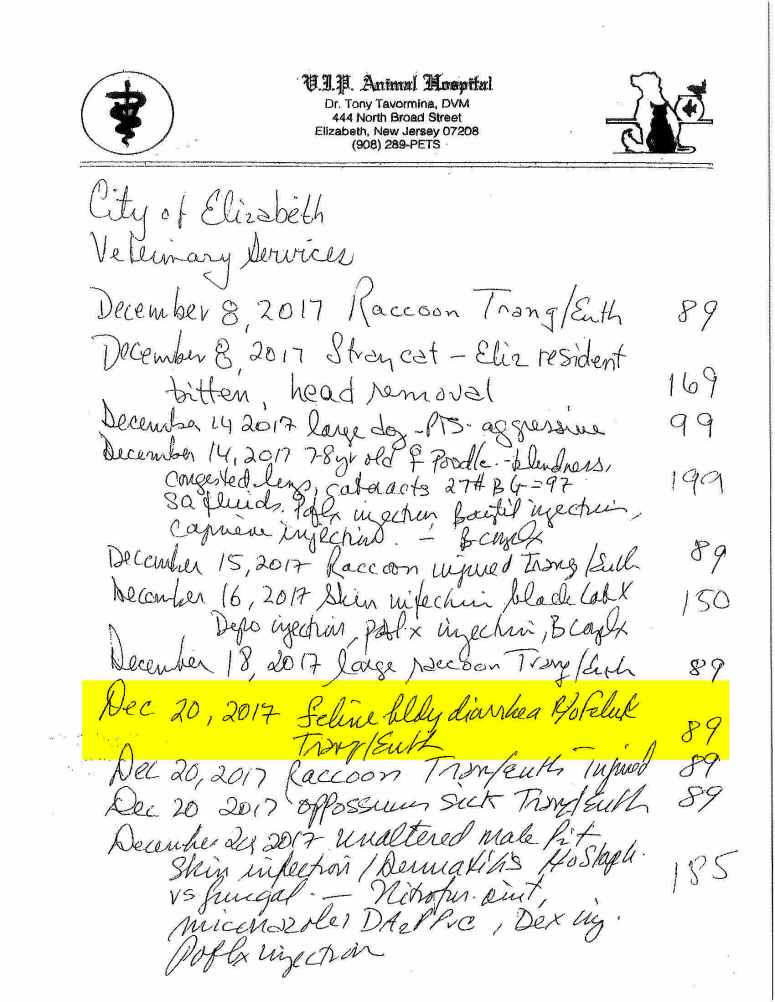 V.I.P. Animal Hospital
Dr. Tony Tavormina, DVM
444 North Broad Street
Elizabeth, New Jersey 07208
(908) 289-PETS
City of Elizabeth
Veterinary Services
December 8, 2017 Raccoon Tranq/Euth 89
December 8, 2017 Stray cat - Eliz resident
bitten, head removal 169
December 14 2017 large dog - PTS - aggressive 99
December 14, 2017 7-8yr old ♀ Poodle - blindness,
congested lens, cataracts 27# BG=97 199
SQ fluids, Poflx injection Baytil injection,
injection. - Bcomplx
December 15, 2017 Raccoon injured Tranq/Euth 89
December 16, 2017 Skin infection black Lab X 150
Depo injection, Poflx injection, B complx
December 18, 2017 large raccoon Tranq/Euth 89
Dec 20, 2017 feline bldy diarrhea R/o FeLuk
Tranq/Euth 89
Dec 20, 2017 Raccoon Tranq/euth Injured 89
Dec 20 2017 oppossum sick Tranq/Euth 89
December 2017 unaltered male Pit
Skin infection / Dermatitis Staph.
vs fungal. - Nitrofur. oint, 185
DA2PPvC, Dex inj.
Poflx injection